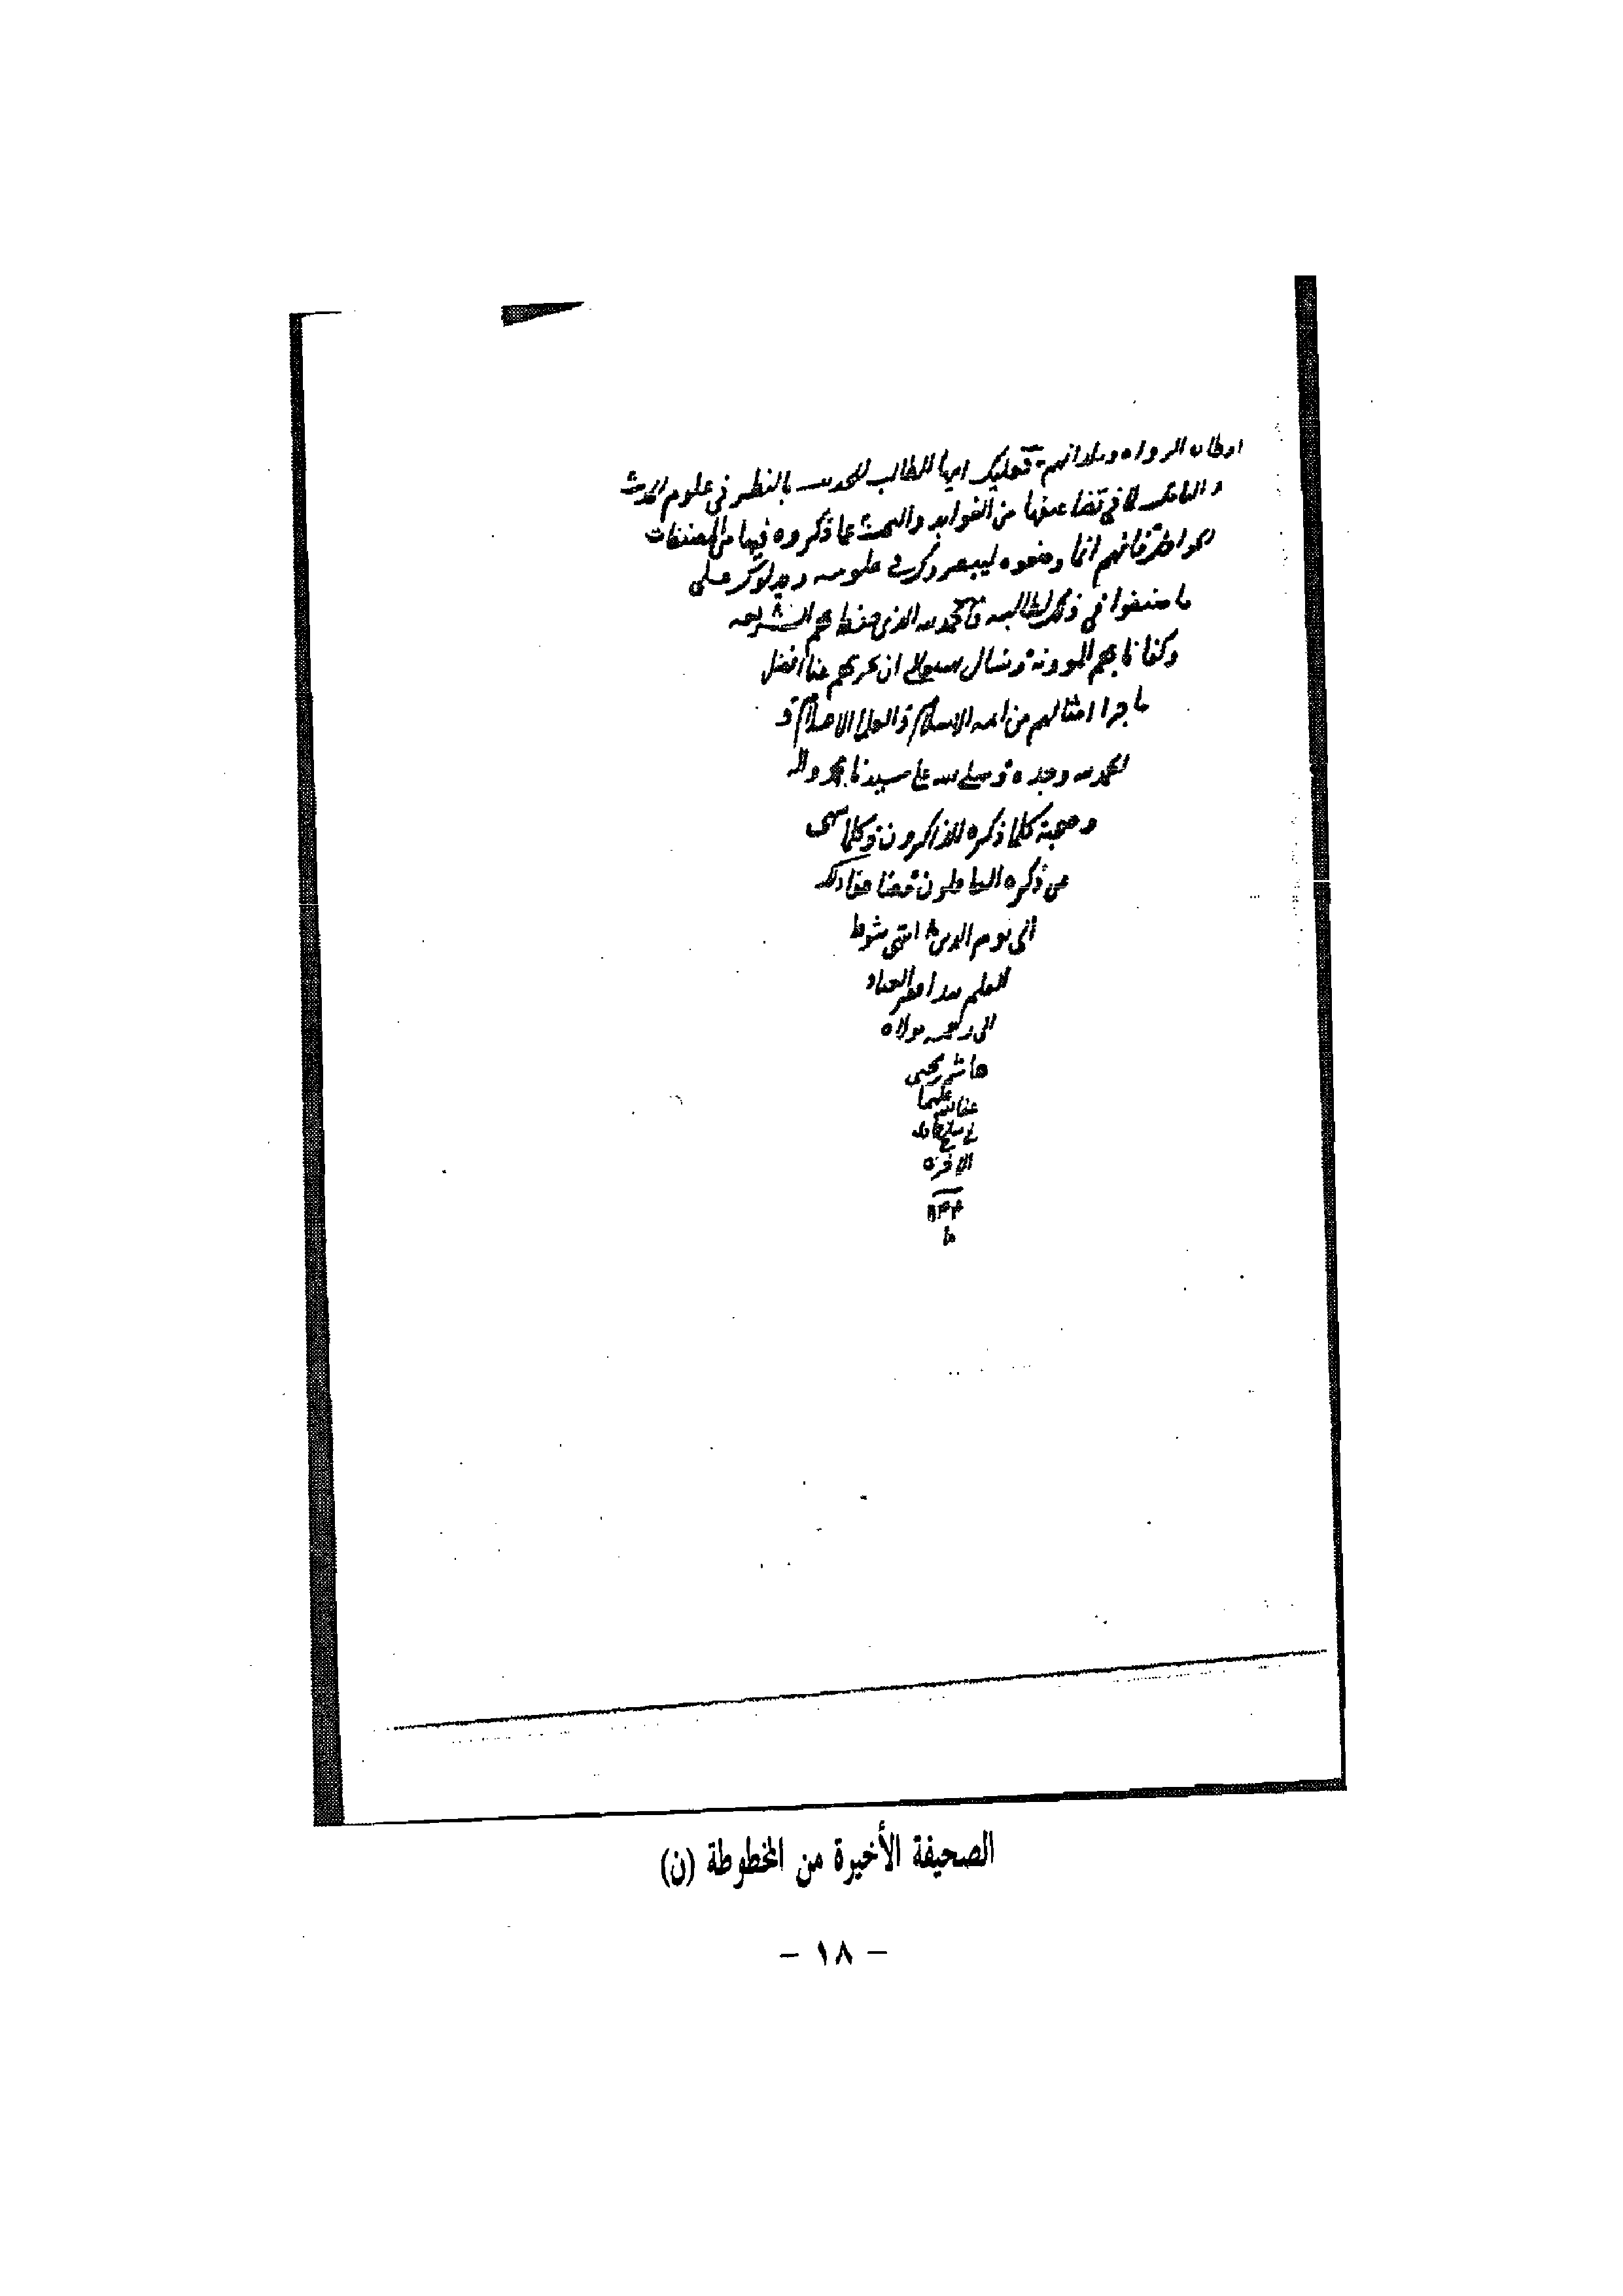 اوطان الرواه وبلدانهم فعليك ايها الطالب للحديث بالنظر في علوم الحديث
والتأمل لما في تضاعيفها من الفوايد والبحث عما ذكروه فيها من المصنفات
فانهم انما وضعوه ليبصروك في علومه ويدلوك على
ما صنفوا في ذلك لطالبه فالحمد لله الذي حفظ بهم الشريعه
وكفانا بهم الموونة ونسال الله ان يجزيهم عنا افضل
ما جزا امثالهم من ايمه الاسلام والعلما الاعلام و
الحمد لله وحده وصلى الله على سيدنا محمد واله
وصحبه كلما ذكره الذاكرون وكلما سهى
عن ذكره الغافلون مضاعفا ذلك
الى يوم الدين انتهى
العلم بيد افقر العباد
الى رحمه مولاه
هاشم يحيى
عفا الله عنهما
في سلخ جماد
الاخره